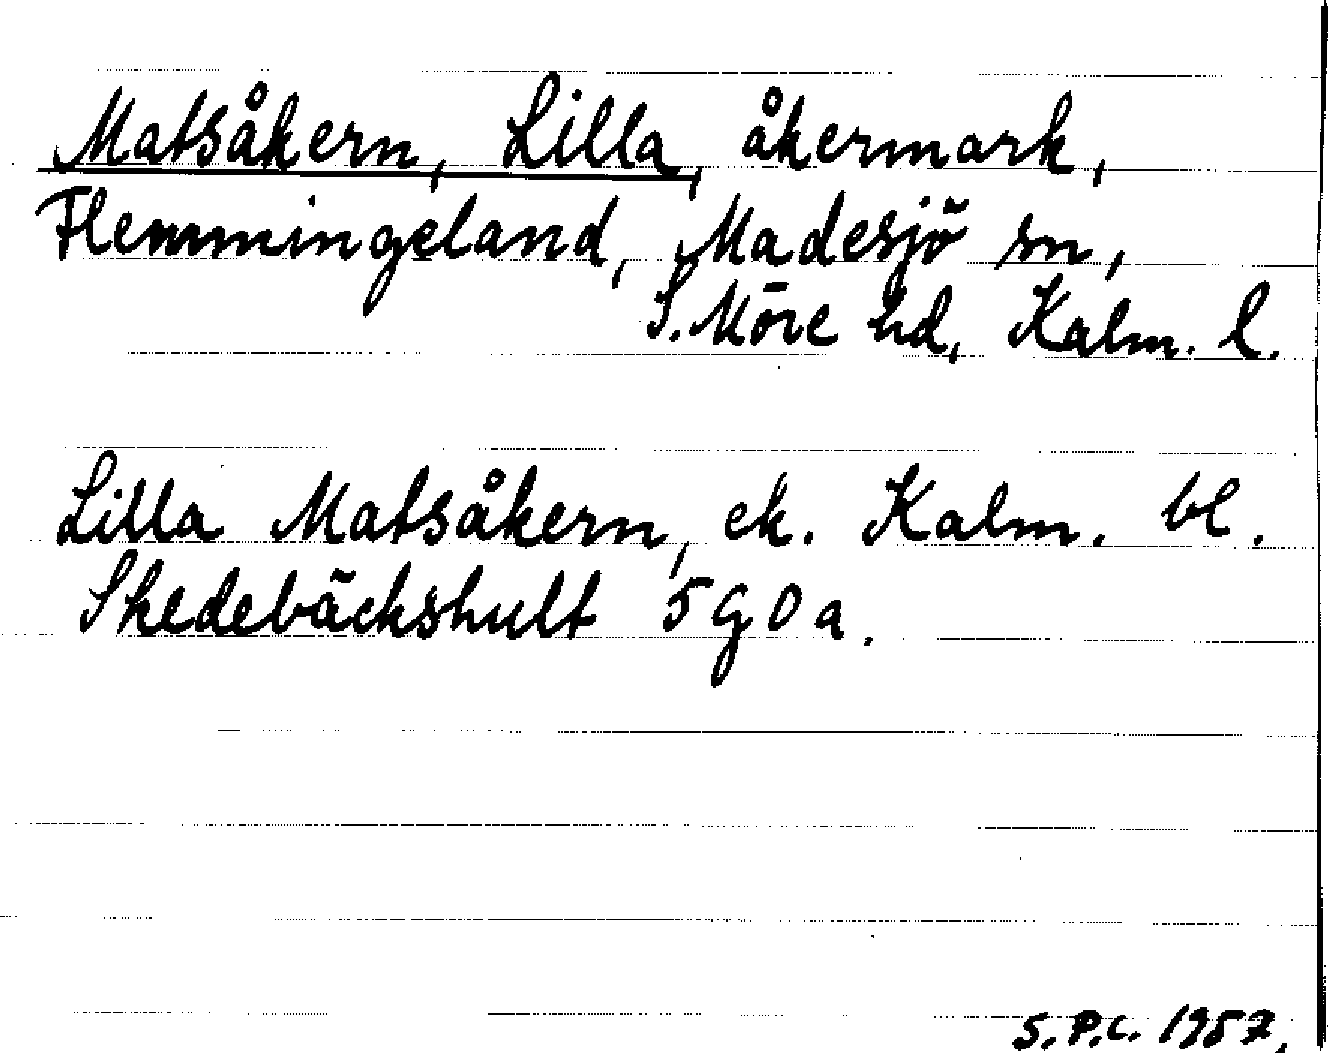 Matsåkern, Lilla, åkermark,
Flemmingeland, Madesjö sn,
S. Möre hd, Kalm. l.
Lilla Matsåkern, ek. Kalm. bl.
Skedebäckshult 5 G 0 a.
S.P.C. 1957.